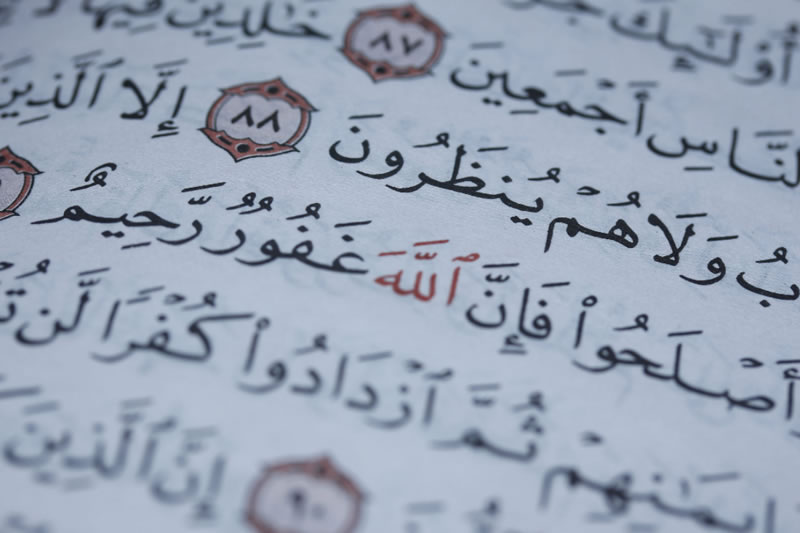 أُو۟لَٰٓئِكَ
لنَّاسِ أَجْمَعِينَ ٨٧ خَٰلِدِينَ فِيهَا
بُ وَلَا هُمْ يُنظَرُونَ ٨٨ إِلَّا ٱلَّذِينَ
أَصْلَحُوا۟ فَإِنَّ ٱللَّهَ غَفُورٌ رَّحِيمٌ
يمَٰنِهِمْ ثُمَّ ٱزْدَادُوا۟ كُفْرًا لَّن تُ
٩٠ إِنَّ ٱلَّذِينَ